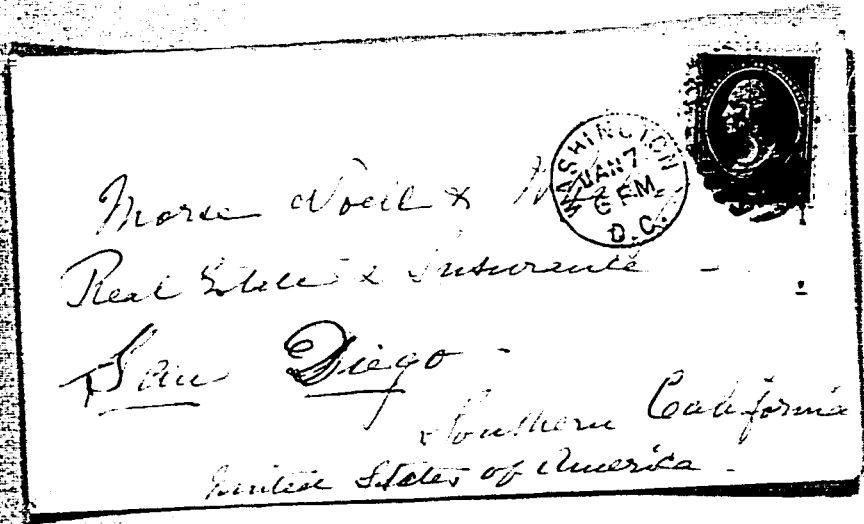 WASHINGTON
JAN 7
6 PM
D.C.
Morse Noell &
Real Estate & Insurance -
San Diego -
Southern California
United States of America -